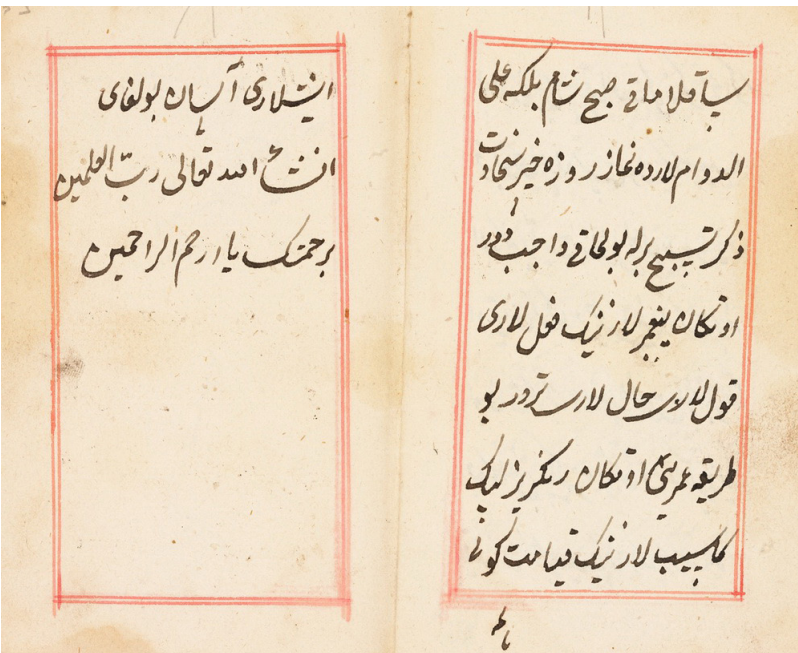 سیاقلاماقی صبح شام بلکه علی
الدوام لارده نماز روزه خیر سخاوت
ذکر تسبیح برله بولماقی واجب دور
اوتکان پیغمبر لارنینک فعل لاری
قول لاری حال لاری ترور بو
طریقه عمرینی اوتکان رنکریزلیک
کاسیب لارنینک قیامت کونی
ایشلاری آسان بولغای
انشاء الله تعالی ربّ العلمین
برحمتک یا ارحم الراحمین